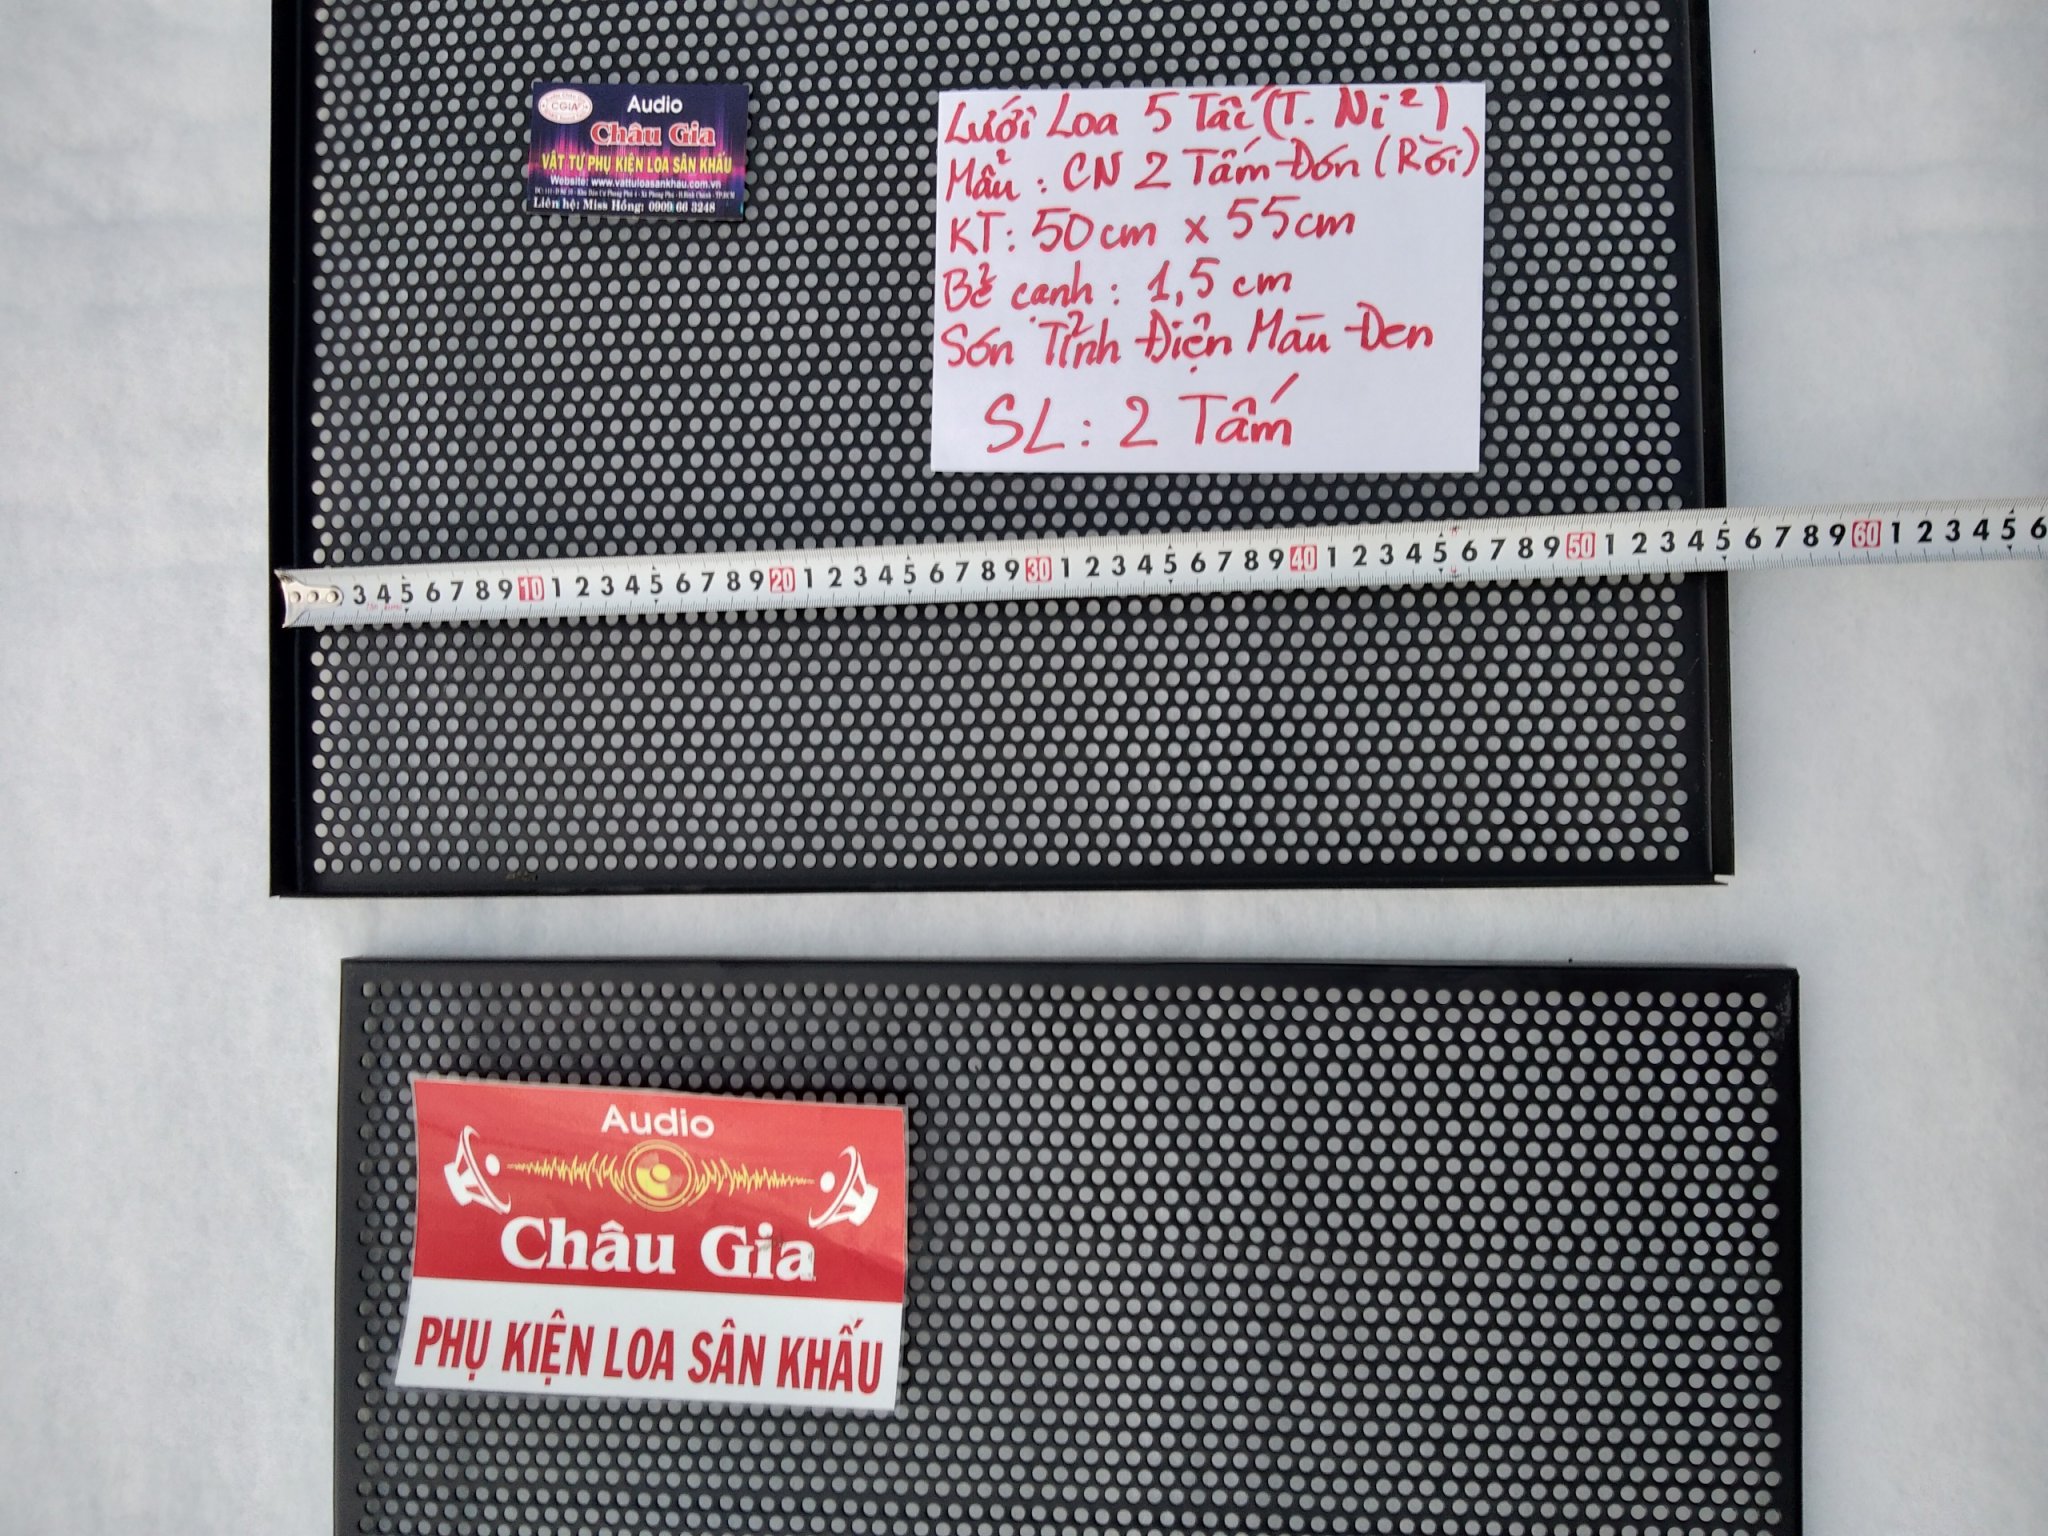 CGIA
Audio
Châu Gia
VẬT TƯ PHỤ KIỆN LOA SÂN KHẤU
Website: www.vattuloasankhau.com.vn
Liên hệ: Miss Hồng: 0909 66 3248
Lưới Loa 5 Tấc (T. Ni²)
Mẫu : CN 2 Tấm Đơn (Rời)
KT: 50cm x 55cm
Bẻ cạnh : 1,5 cm
Sơn Tĩnh Điện Màu Đen
SL: 2 Tấm
3 4 5 6 7 8 9 10 1 2 3 4 5 6 7 8 9 20 1 2 3 4 5 6 7 8 9 30 1 2 3 4 5 6 7 8 9 40 1 2 3 4 5 6 7 8 9 50 1 2 3 4 5 6 7 8 9 60 1 2 3 4 5 6
Audio
Châu Gia
PHỤ KIỆN LOA SÂN KHẤU